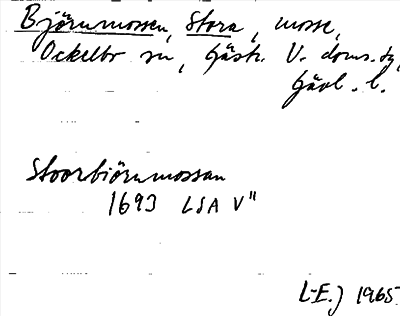 Björnmossen, Stora, mosse,
Ockelbo sn, Gästr. V. doms.
Gävl. l.
Stoorbiörnmossan
1693 LSA V"
L-E.J 1965